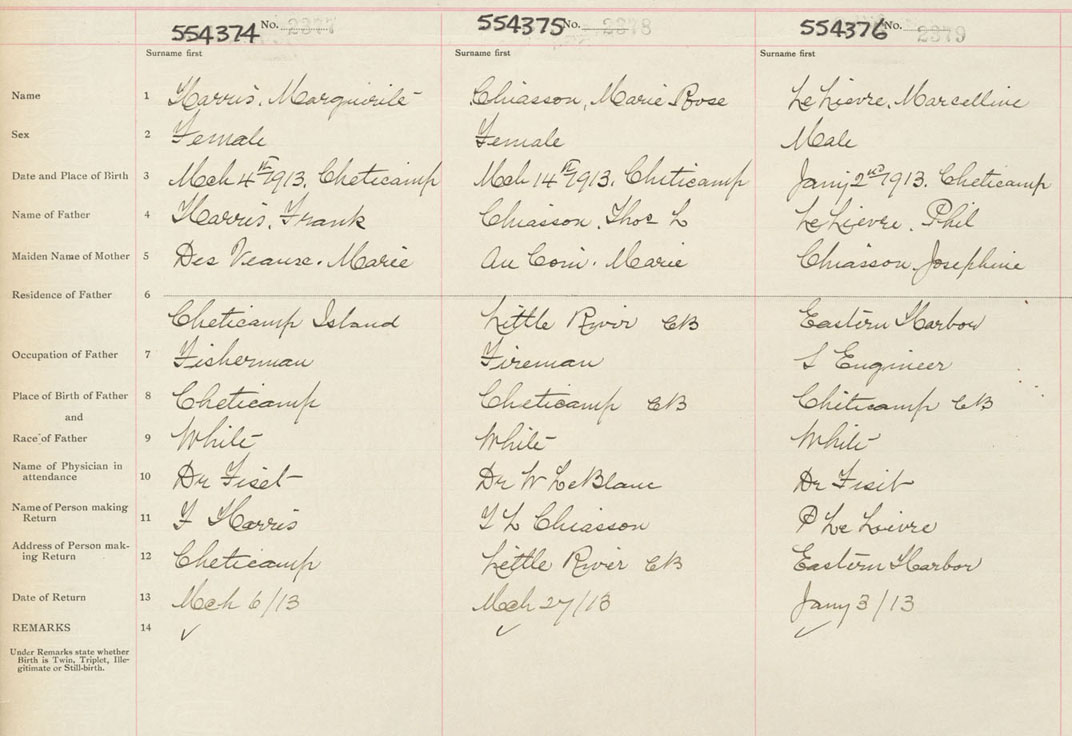 554374 No. 2377 554375 No. 2378 554376 No. 2379
Surname first Surname first Surname first
Name 1 Harris, Marguirite Chiasson, Marie Rose Le Lievre, Marcelline
Sex 2 Female Female Male
Date and Place of Birth 3 Mch 4th 1913. Cheticamp Mch 14th 1913. Chiticamp Jany 2nd 1913. Cheticamp
Name of Father 4 Harris, Frank Chiasson, Thos L Le Lievre, Phil
Maiden Name of Mother 5 Des Veause. Marie Au Coin. Marie Chiasson, Josephine
Residence of Father 6
Cheticamp Island Little River CB Eastern Harbor
Occupation of Father 7 Fisherman Fireman S Engineer
Place of Birth of Father 8 Cheticamp Cheticamp CB Chiticamp CB
and
Race of Father 9 White White White
Name of Physician in
attendance 10 Dr Fiset Dr W LeBlanc Dr Fisit
Name of Person making
Return 11 F Harris T L Chiasson P Le Leivre
Address of Person mak-
ing Return 12 Cheticamp Little River CB Eastern Harbor
Date of Return 13 Mch 6/13 Mch 27/13 Jany 3/13
REMARKS 14 ✓ ✓ ✓
Under Remarks state whether
Birth is Twin, Triplet, Ille-
gitimate or Still-birth.